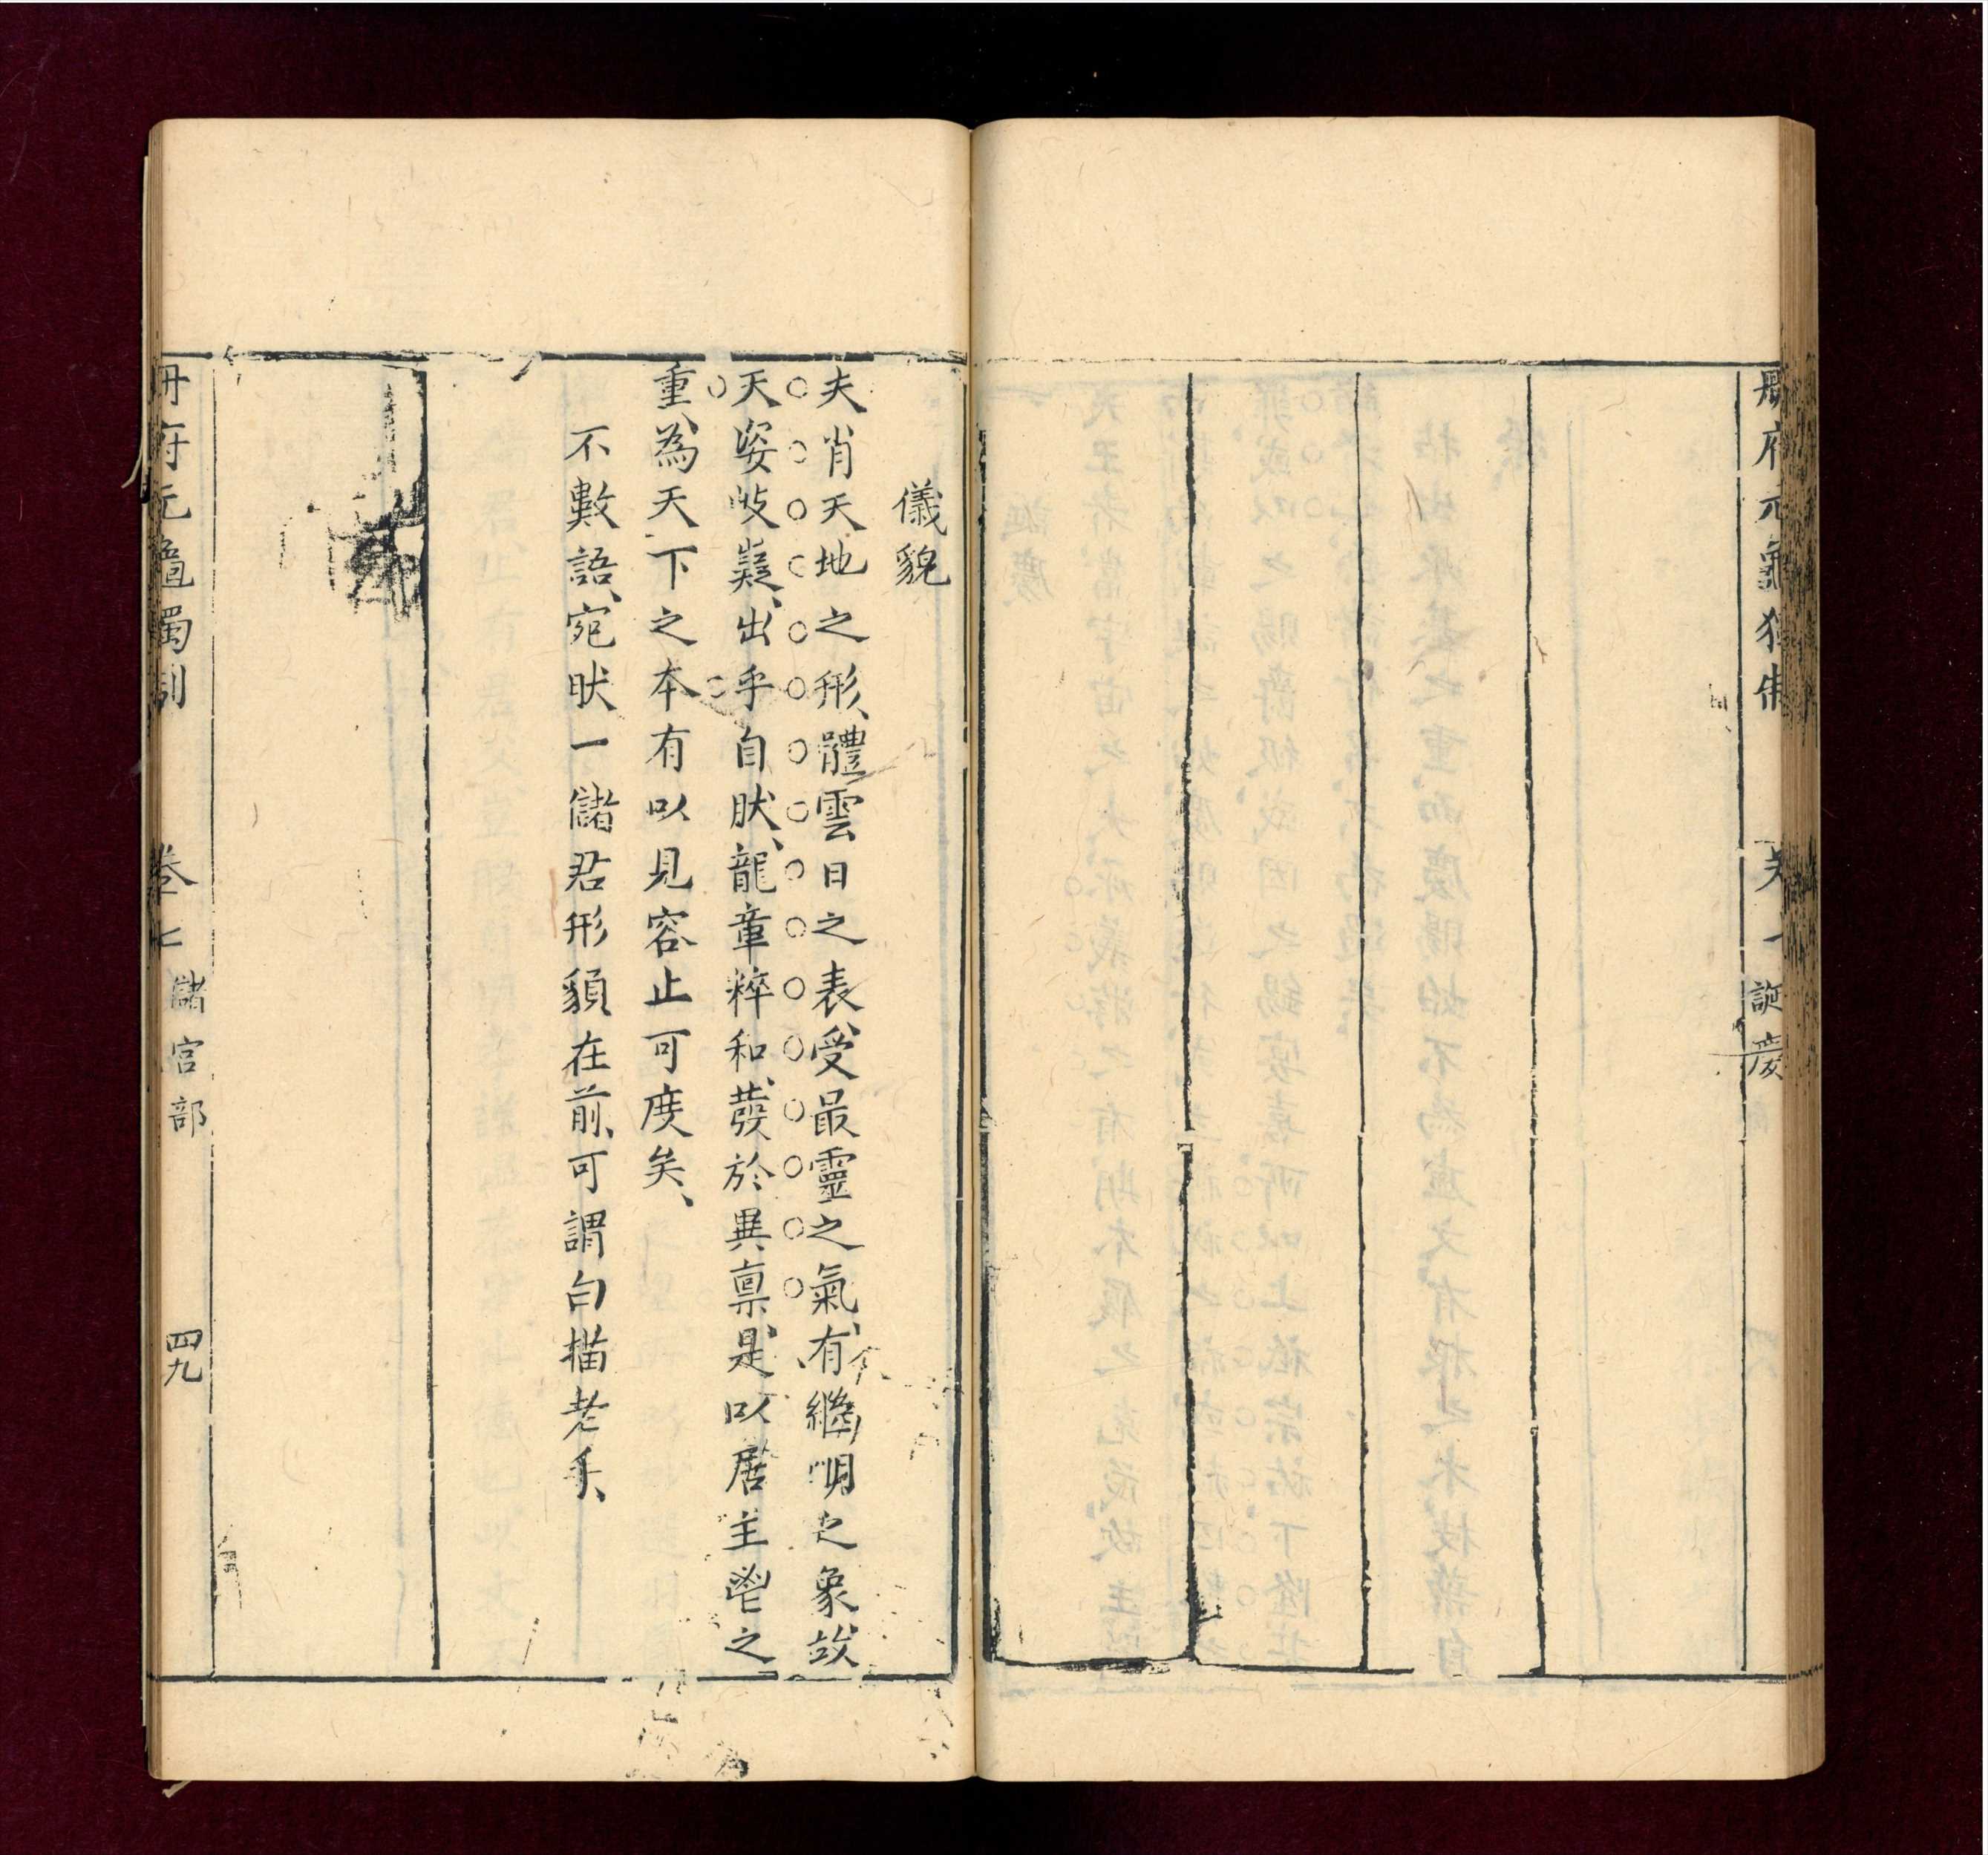 冊府元龜獨制 卷七 誕慶
儀貌
夫肖天地之形、體雲日之表、受最靈之氣、有繼明之象、故
天姿岐嶷、出乎自肰、龍章粹和、發於異禀、是以居主鬯之
重、為天下之本、有以見容止可度矣、
不數語、宛肰一儲君形貌在前、可謂白描老手、
冊府元龜獨制 卷七 儲宮部 四九